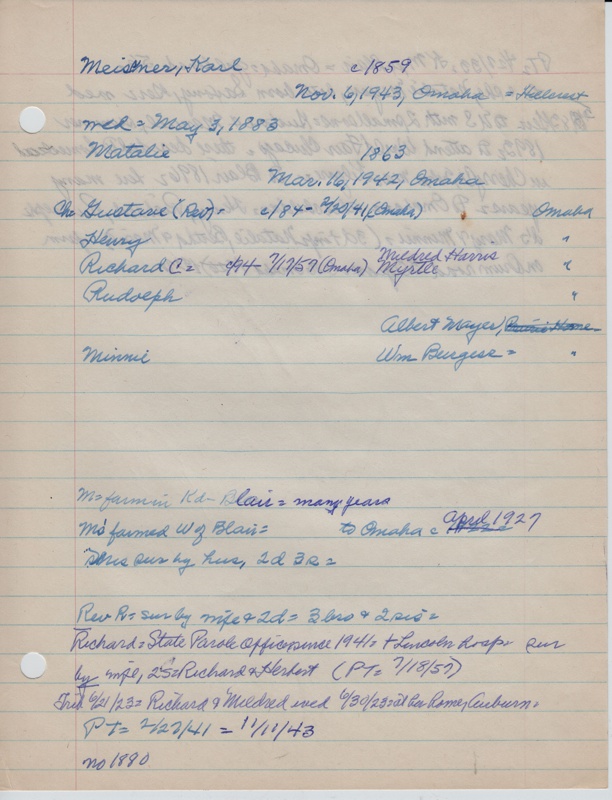 Meisner, Karl c1859
Nov. 6, 1943, Omaha = Helmut
med = May 3, 1883
Matalie 1863
Mar. 16, 1942, Omaha
Ch: Gustave (Rev) = c/84 - 2/20/41 (Omaha) Omaha
Henry "
Richard C = c/94 7/17/57 (Omaha) Mildred Harris Myrtle "
Rudolph "
Albert Mayer,
Minnie Wm Burgess = "
M = farm in Kd - Blair = many years
M's farmed W of Blair = to Omaha c April 1927
sur by hus, 2d 3s =
Rev R = sur by wife & 2d = 3 bro & 2 sis =
Richard = State Parole Officer since 1941 = + Lincoln hosp = sur
by wife, 2S = Richard & Herbert (PT = 7/18/57)
6/21/23 = Richard & Mildred wed 6/30/23 = at her home, Auburn =
PT = 2/27/41 = 11/11/43
no 1880